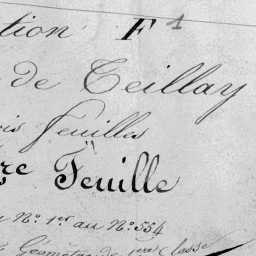 tion F 1
de Teillay
is feuilles
re Feuille
N° 1er au N° 554
Géomètre de 1ere Classe